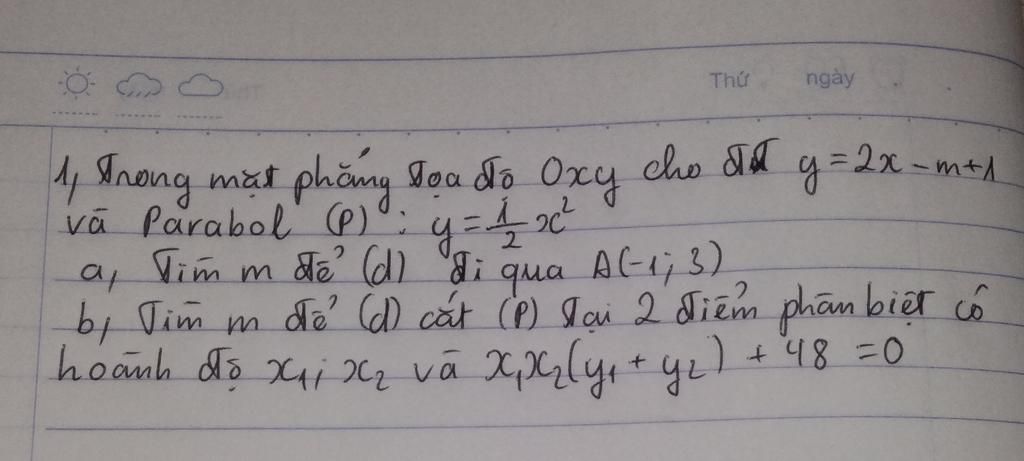 Thứ ngày
1, Trong mặt phẳng tọa độ Oxy cho đt y = 2x - m + 1
và Parabol (P) : y = 1/2 x²
a, Tìm m để (d) đi qua A(-1; 3)
b, Tìm m để (d) cắt (P) tại 2 điểm phân biệt có
hoành độ x₁; x₂ và x₁x₂(y₁ + y₂) + 48 = 0